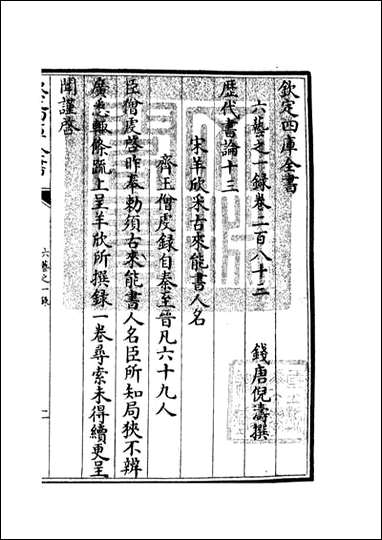 欽定四庫全書
六藝之一録卷二百八十三
錢唐倪濤撰
歴代書論十三
宋羊欣采古來能書人名
齊王僧虔録自秦至晉凡六十九人
臣僧虔啓昨奉勅須古來能書人名臣所知局狹不辨
廣悉輙條疏上呈羊欣所撰録一卷尋索未得續更呈
聞謹啓
六藝之一録